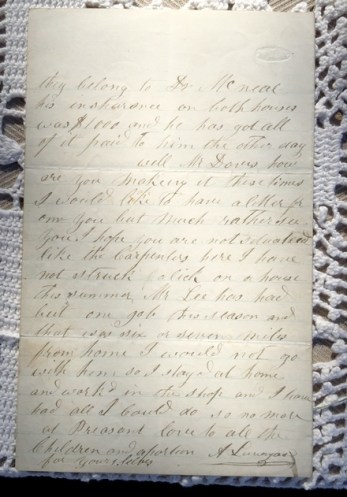 they belong to Dr Mc neal
his inshurance on both houses
was $1000 and he has got all
of it paid to him the other day
well Mr Davis how
are you makeing it these times
I would like to have a letter fr
om you but much rather see
you I hope you are not situated
like the Carpenters here I have
not struck a lick on a house
this summer Mr Lee has had
but one job this season and
that is six or seven miles
from home I would not go
with him so I stay'd at home
and work'd in the shop and I have
had all I Could do so no more
at Preasant love to all the
Children and a portion
for yours